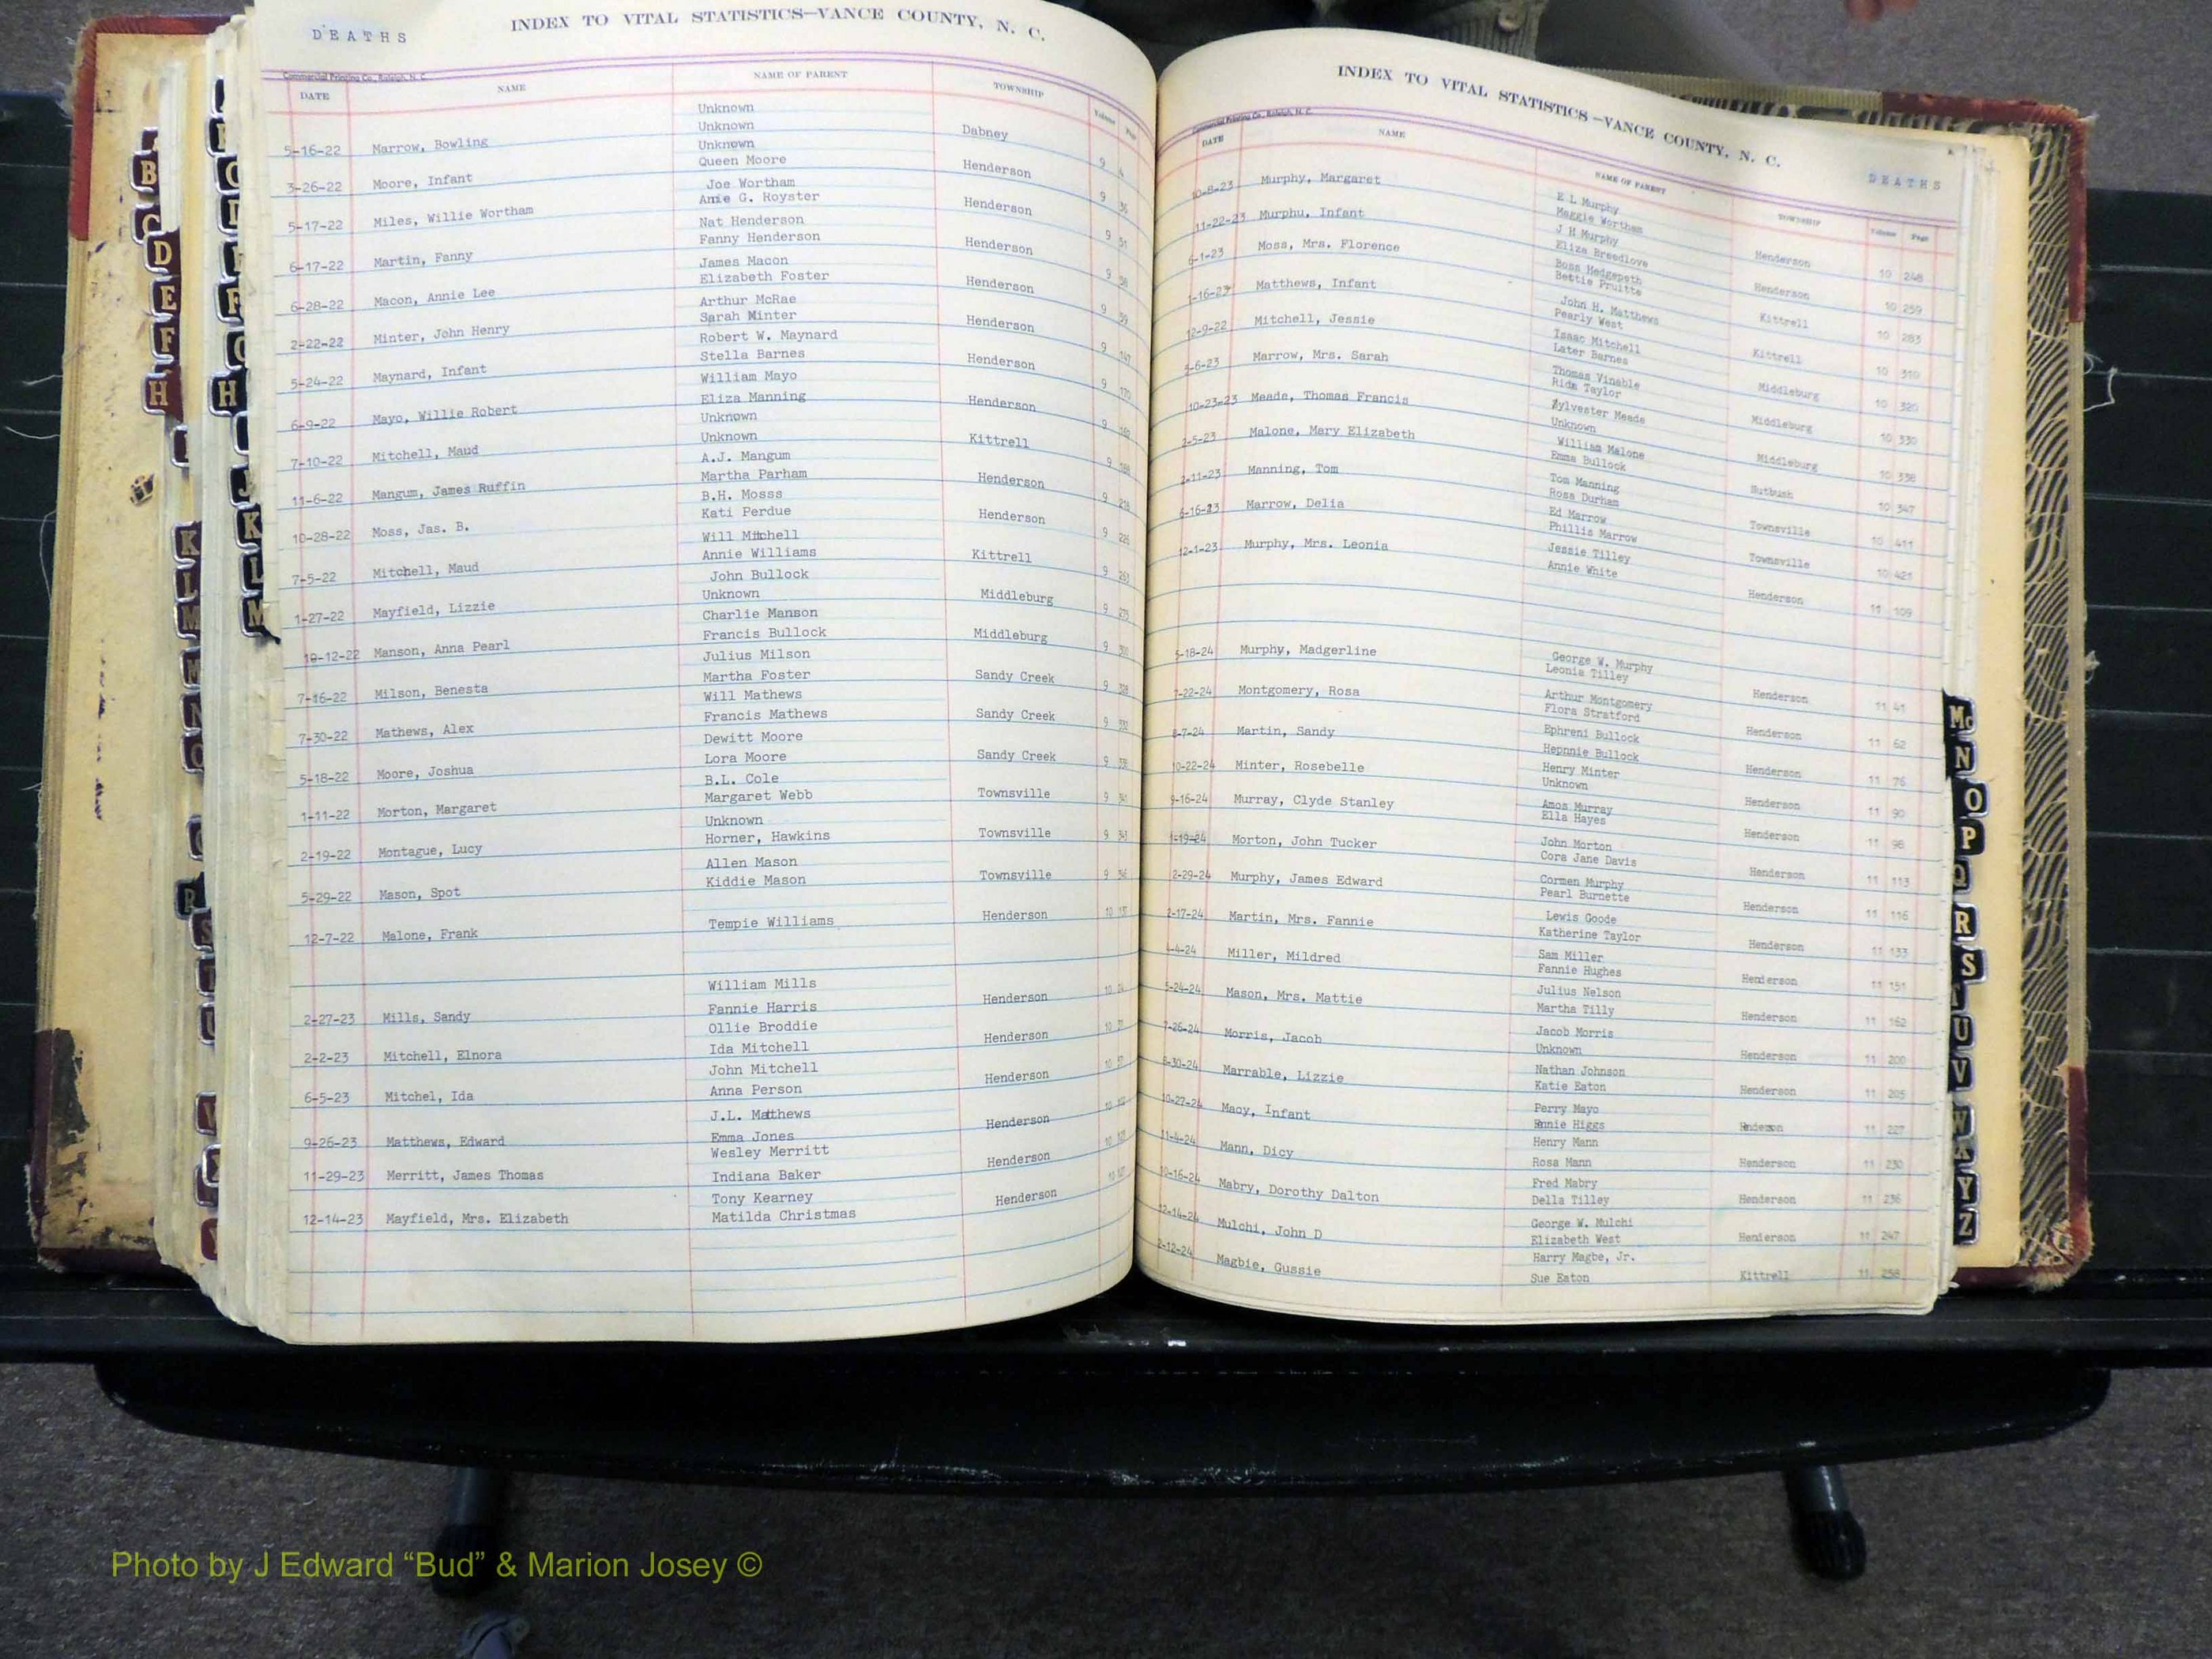 DEATHS
INDEX TO VITAL STATISTICS—VANCE COUNTY, N. C.
Commercial Printing Co., Raleigh, N. C.
DATE NAME NAME OF PARENT TOWNSHIP Volume Page
Unknown
Unknown
5-16-22 Marrow, Bowling Unknown Dabney 9 4
Queen Moore
3-26-22 Moore, Infant Joe Wortham Henderson 9 36
Amie G. Royster
5-17-22 Miles, Willie Wortham Nat Henderson Henderson 9 51
Fanny Henderson
6-17-22 Martin, Fanny James Macon Henderson 9
Elizabeth Foster
6-28-22 Macon, Annie Lee Arthur McRae Henderson 9
Sarah Minter
2-22-22 Minter, John Henry Robert W. Maynard Henderson 9
Stella Barnes
5-24-22 Maynard, Infant William Mayo Henderson 9
Eliza Manning
6-9-22 Mayo, Willie Robert Unknown Henderson 9
Unknown
7-10-22 Mitchell, Maud A.J. Mangum Kittrell 9
Martha Parham
11-6-22 Mangum, James Ruffin B.H. Mosss Henderson 9
Kati Perdue
10-28-22 Moss, Jas. B. Will Mitchell Henderson 9
Annie Williams
7-5-22 Mitchell, Maud John Bullock Kittrell 9
Unknown
1-27-22 Mayfield, Lizzie Charlie Manson Middleburg 9
Francis Bullock
10-12-22 Manson, Anna Pearl Julius Milson Middleburg 9
Martha Foster
7-16-22 Milson, Benesta Will Mathews Sandy Creek 9
Francis Mathews
7-30-22 Mathews, Alex Dewitt Moore Sandy Creek 9
Lora Moore
5-18-22 Moore, Joshua B.L. Cole Sandy Creek 9
Margaret Webb
1-11-22 Morton, Margaret Unknown Townsville 9
Horner, Hawkins
2-19-22 Montague, Lucy Allen Mason Townsville 9
Kiddie Mason
5-29-22 Mason, Spot Townsville 9
Tempie Williams
12-7-22 Malone, Frank Henderson 10
William Mills
Fannie Harris
2-27-23 Mills, Sandy Ollie Broddie Henderson 10
Ida Mitchell
2-2-23 Mitchell, Elnora John Mitchell Henderson 10
Anna Person
6-5-23 Mitchel, Ida J.L. Matthews Henderson 10
Emma Jones
9-26-23 Matthews, Edward Wesley Merritt Henderson 10
11-29-23 Merritt, James Thomas Indiana Baker Henderson 10
Tony Kearney
12-14-23 Mayfield, Mrs. Elizabeth Matilda Christmas Henderson 10
INDEX TO VITAL STATISTICS—VANCE COUNTY, N. C.
DEATHS
Commercial Printing Co., Raleigh, N. C.
DATE NAME NAME OF PARENT TOWNSHIP Volume Page
10-8-23 Murphy, Margaret E L Murphy
Maggie Wortham Henderson 10 248
11-22-23 Murphu, Infant J H Murphy
Eliza Breedlove Henderson 10 259
6-1-23 Moss, Mrs. Florence Boss Hedgepeth
Bettie Pruitte Kittrell 10 283
1-16-23 Matthews, Infant John H. Matthews
Pearly West Kittrell 10 310
12-9-22 Mitchell, Jessie Isaac Mitchell
Later Barnes Middleburg 10 320
-6-23 Marrow, Mrs. Sarah Thomas Vinable
Rida Taylor Middleburg 10 330
10-23-23 Meade, Thomas Francis Zylvester Meade
Unknown Middleburg 10 338
2-5-23 Malone, Mary Elizabeth William Malone
Emma Bullock Nutbush 10 347
2-11-23 Manning, Tom Tom Manning
Rosa Durham Townsville 10 411
6-16-23 Marrow, Delia Ed Marrow
Phillis Marrow Townsville 10 421
12-1-23 Murphy, Mrs. Leonia Jessie Tilley
Annie White Henderson 11 109
5-18-24 Murphy, Madgerline George W. Murphy
Leonia Tilley Henderson 11 41
7-22-24 Montgomery, Rosa Arthur Montgomery
Flora Stratford Henderson 11 62
8-7-24 Martin, Sandy Ephreni Bullock
Hepnnie Bullock Henderson 11 76
10-22-24 Minter, Rosebelle Henry Minter
Unknown Henderson 11 90
9-16-24 Murray, Clyde Stanley Amos Murray
Ella Hayes Henderson 11 96
1-19-24 Morton, John Tucker John Morton
Cora Jane Davis Henderson 11 113
2-29-24 Murphy, James Edward Cormen Murphy
Pearl Burnette Henderson 11 116
2-17-24 Martin, Mrs. Fannie Lewis Goode
Katherine Taylor Henderson 11 133
4-4-24 Miller, Mildred Sam Miller
Fannie Hughes Henderson 11 151
5-24-24 Mason, Mrs. Mattie Julius Nelson
Martha Tilly Henderson 11 162
7-26-24 Morris, Jacob Jacob Morris
Unknown Henderson 11 200
8-30-24 Marrable, Lizzie Nathan Johnson
Katie Eaton Henderson 11 205
10-27-24 Maoy, Infant Perry Mayo
Higgs 11 227
11-4-24 Mann, Dicy Henry Mann
Rosa Mann Henderson 11 230
10-16-24 Mabry, Dorothy Dalton Fred Mabry
Della Tilley Henderson 11 236
12-14-24 Mulchi, John D George W. Mulchi
Elizabeth West Henderson 11 247
2-12-24 Magbie, Gussie Harry Magbe, Jr.
Sue Eaton Kittrell 11 258
B
C
D
E
F
H
K
L
M
M
N
O
R
S
T
U
V
H
K
L
M
Mc
N
O
P
Q
R
S
U
V
W
X
Y
Z
Photo by J Edward “Bud” & Marion Josey ©